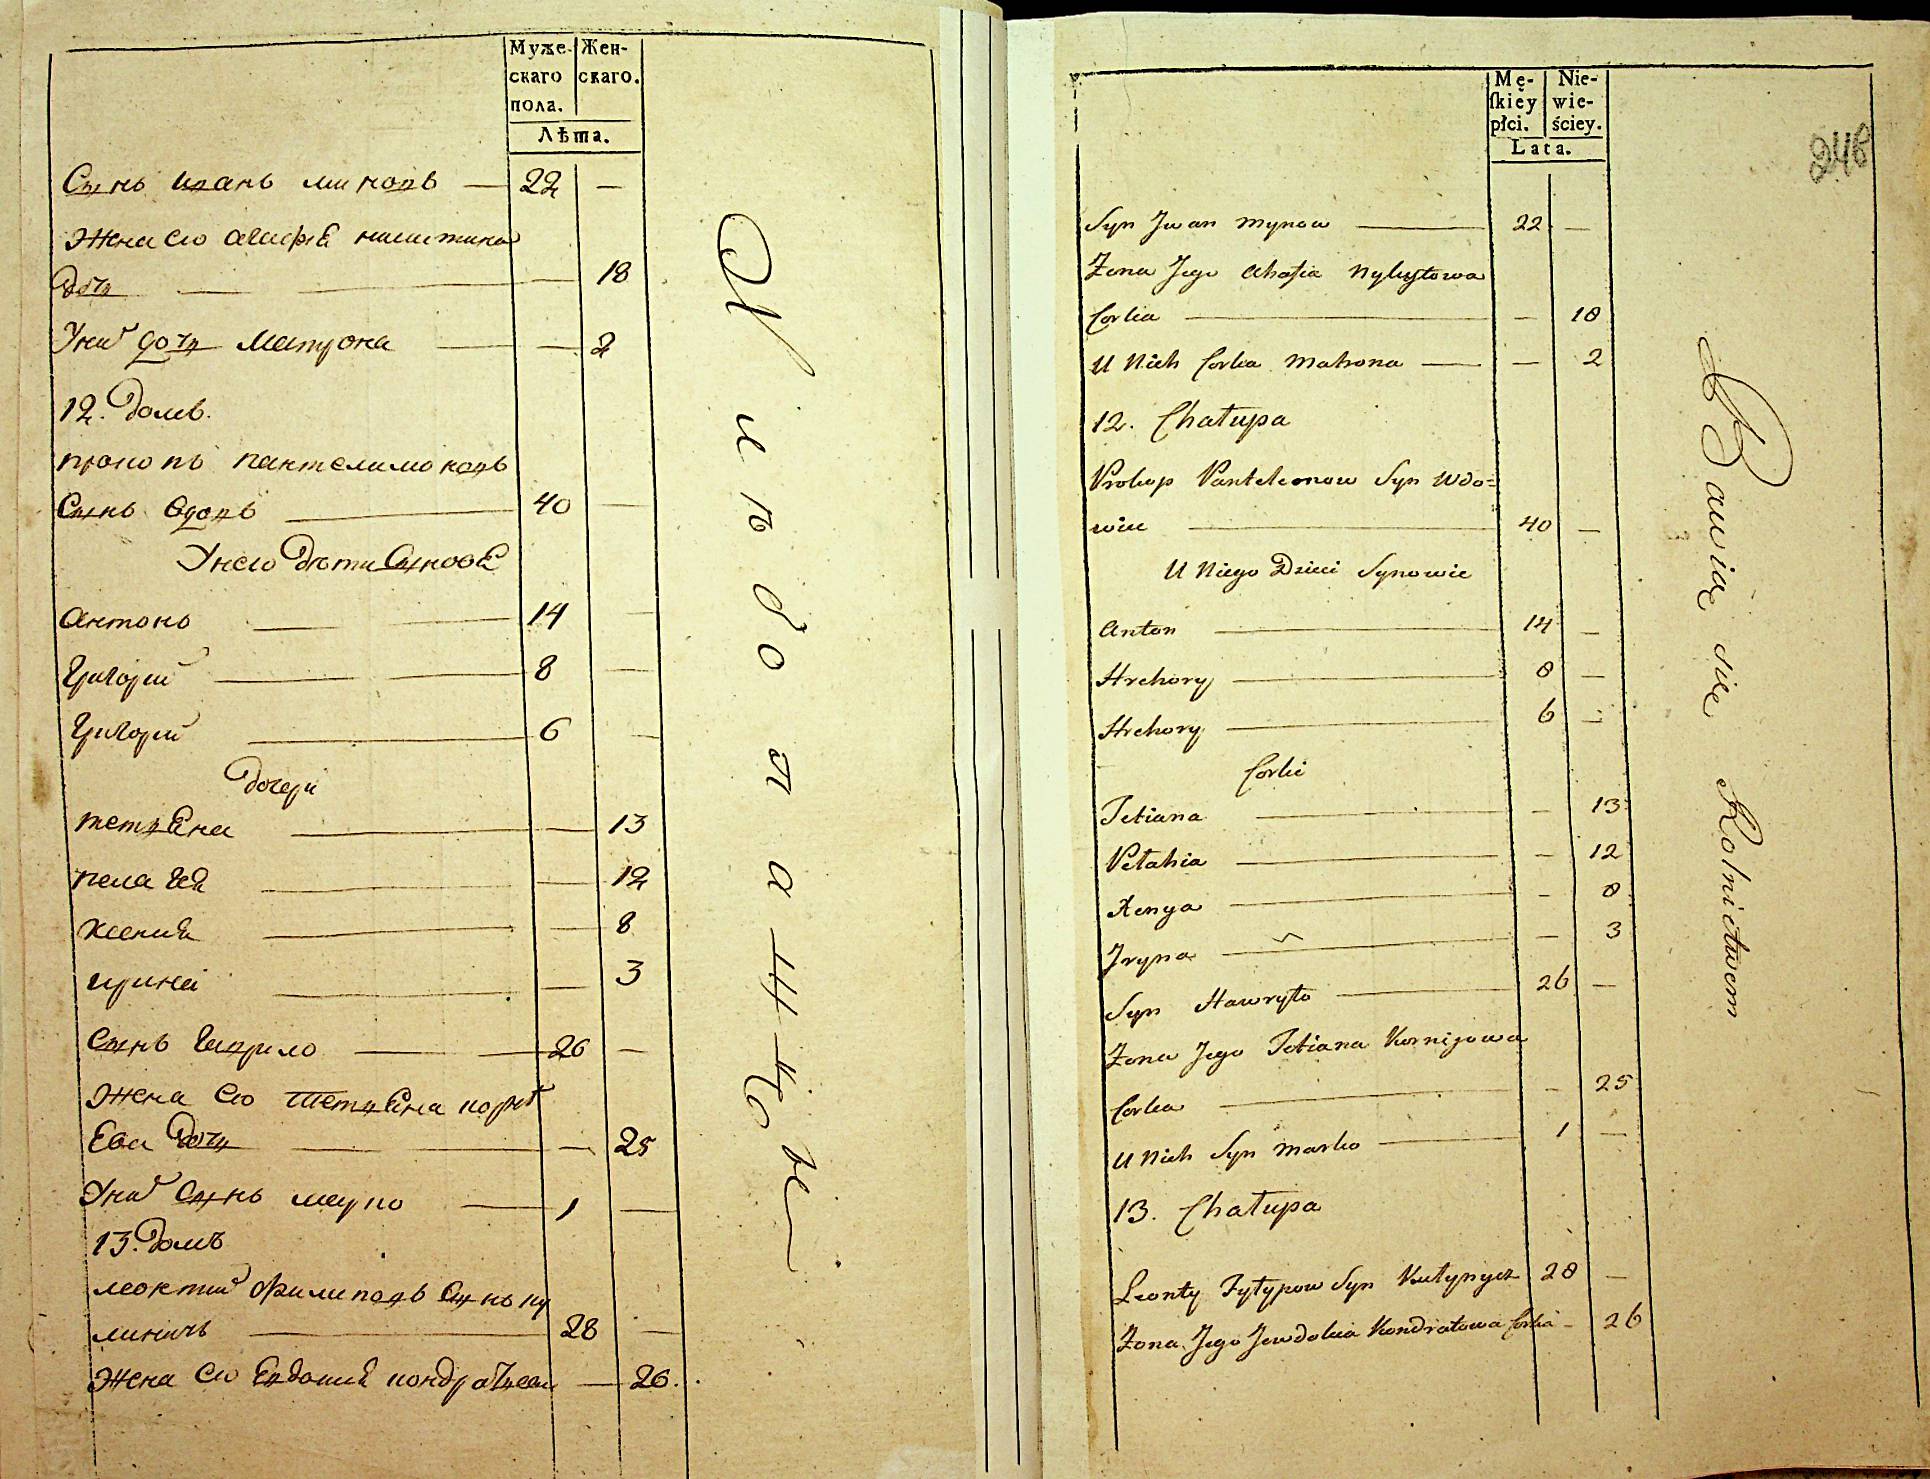 Муже-
скаго
пола.
Жен-
скаго.
Лѣта.
Сынъ Иванъ миновъ — 22 —
Жена его агафия никитина
дочь — 18
У них дочь Матрона — — 2
12. Домъ.
прокопъ пантелимоновъ
Сынъ вдовъ — 40 —
У него дѣти Сыновя
антонъ — 14 —
Григорий — 8 —
Григорий — 6 —
Дочери
тетяна — — 13
пелагея — — 12
ксения — — 8
ирина — — 3
Сынъ Гаврило — 26 —
Жена его Тетяна корнѣ
Ева дочь — — 25
У них Сынъ марко — 1 —
13. Домъ
леонтий филиповъ Сынъ ку
линичъ — 28 —
Жена его Евдокия кондратьева — 26.
Хлѣбопашцы
Mę-
skiey
płci.
Nie-
wie-
ściey.
Lata.
246
Syn Jwan Mynow — 22 —
Żona Jego Ahafia Nykytowa
Corka — — 18
U Nich Corka Matrona — — 2
12. Chałupa
Prokop Panteleonow Syn Wdo=
wiec — 40 —
U Niego Dzieci Synowie
Anton — 14 —
Hrehory — 8 —
Hrehory — 6 —
Corki
Tetiana — — 13
Pelahia — — 12
Xenya — — 8
Jryna — — 3
Syn Hawryło — 26 —
Żona Jego Tetiana Kornijowa
Corka — — 25
U Nich Syn Marko — 1 —
13. Chałupa
Leonty Fylypow Syn Kulynycz 28 —
Żona Jego Jewdokia Kondratowa Corka — 26
Bawią się Rolnictwem